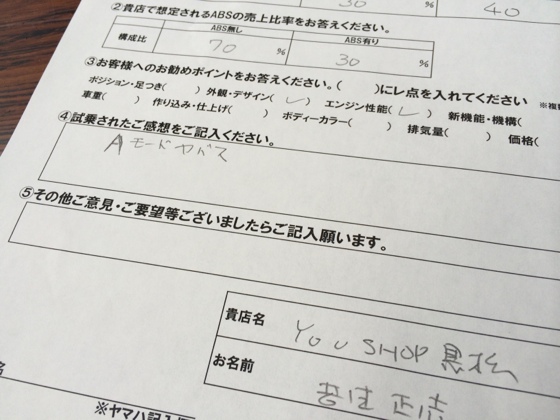 30 % 40
②貴店で想定されるABSの売上比率をお答えください。
ABS無し ABS有り
構成比 70 % 30 %
③お客様へのお勧めポイントをお答えください。( )にレ点を入れてください ※複
ポジション・足つき( ) 外観・デザイン(レ) エンジン性能(レ) 新機能・機構(
車重( ) 作り込み・仕上げ( ) ボディーカラー( ) 排気量( ) 価格(
④試乗されたご感想をご記入ください。
Aモードヤバス
⑤その他ご意見・ご要望等ございましたらご記入願います。
貴店名 YOU SHOP 黒松
お名前 正志
名
※ヤマハ記入